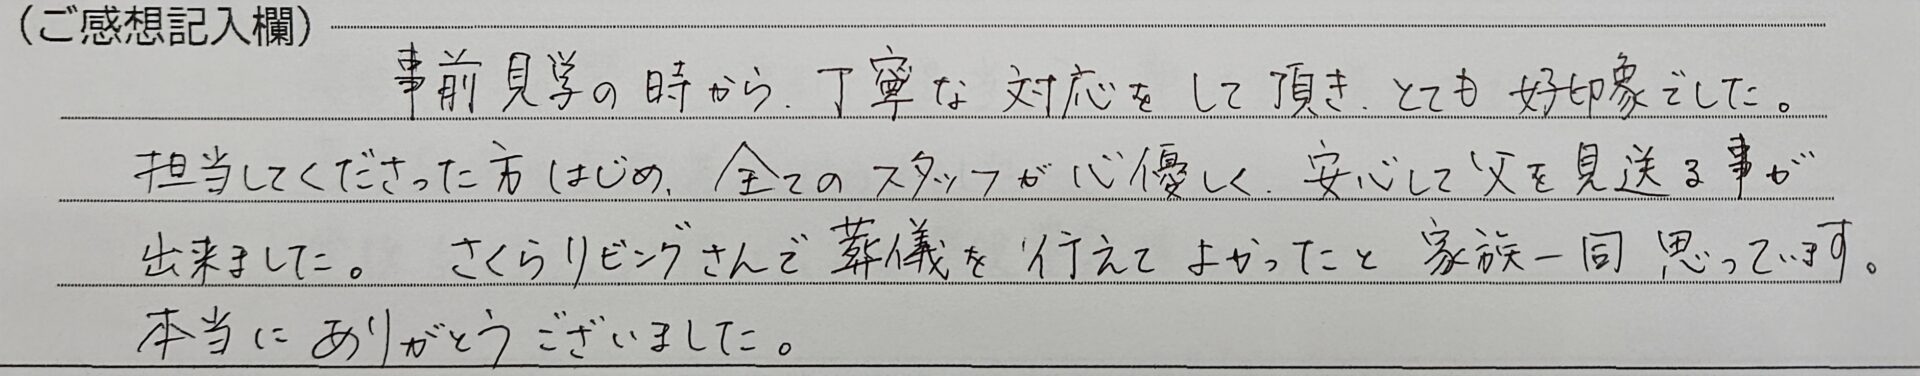 （ご感想記入欄）
事前見学の時から、丁寧な対応をして頂き、とても好印象でした。
担当してくださった方はじめ、全てのスタッフが心優しく、安心して父を見送る事が
出来ました。 さくらリビングさんで葬儀を行えてよかったと家族一同思っています。
本当にありがとうございました。